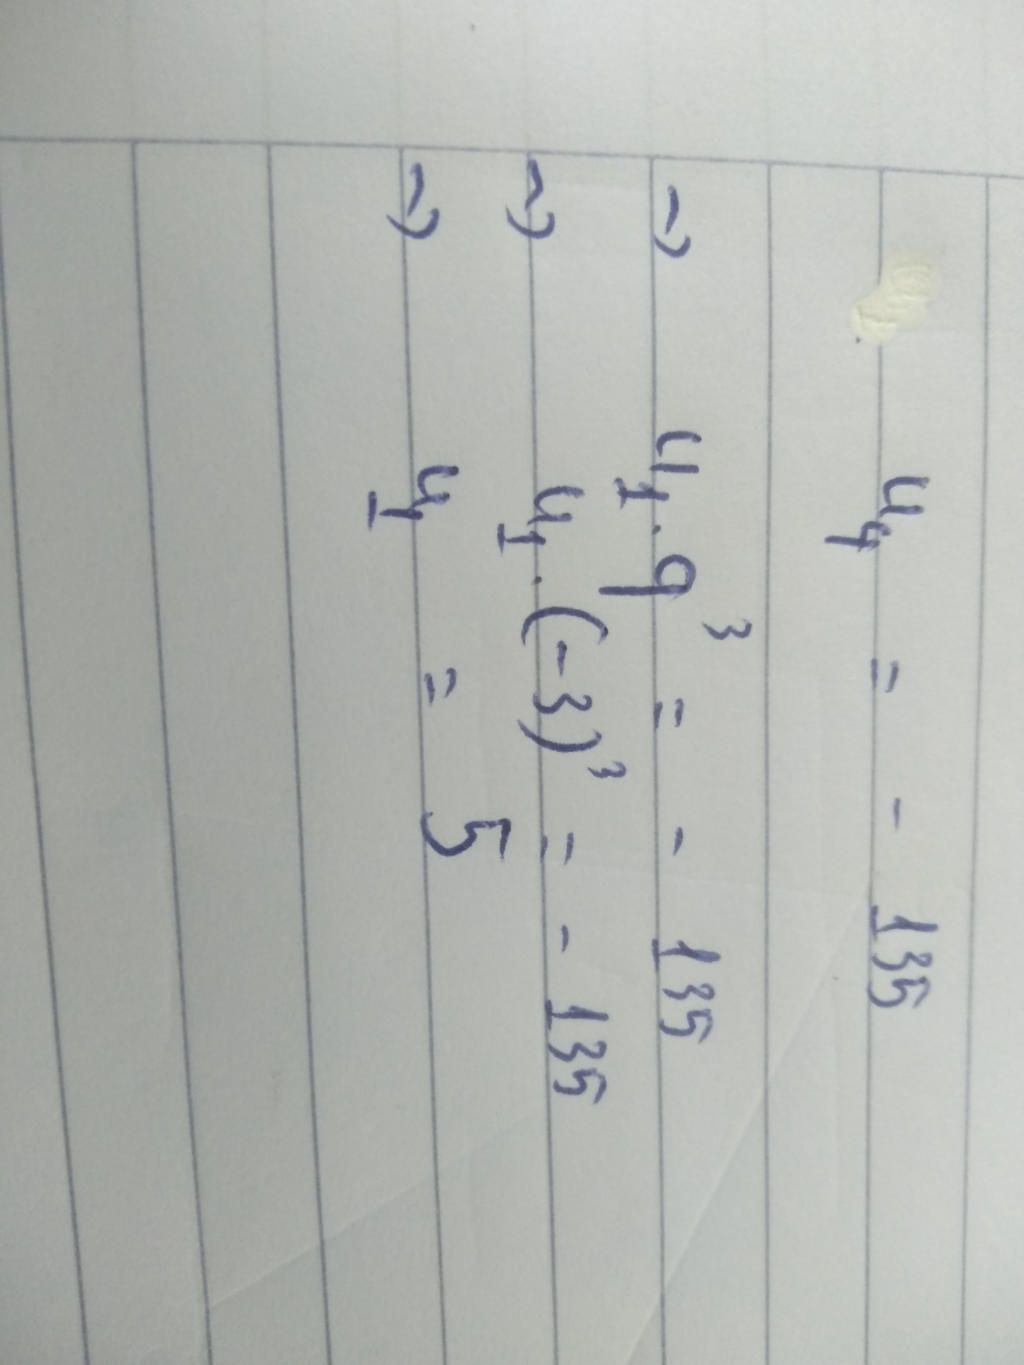 u₄ = - 135
→ u₁ . q³ = - 135
→ u₁ . (-3)³ = - 135
→ u₁ = 5